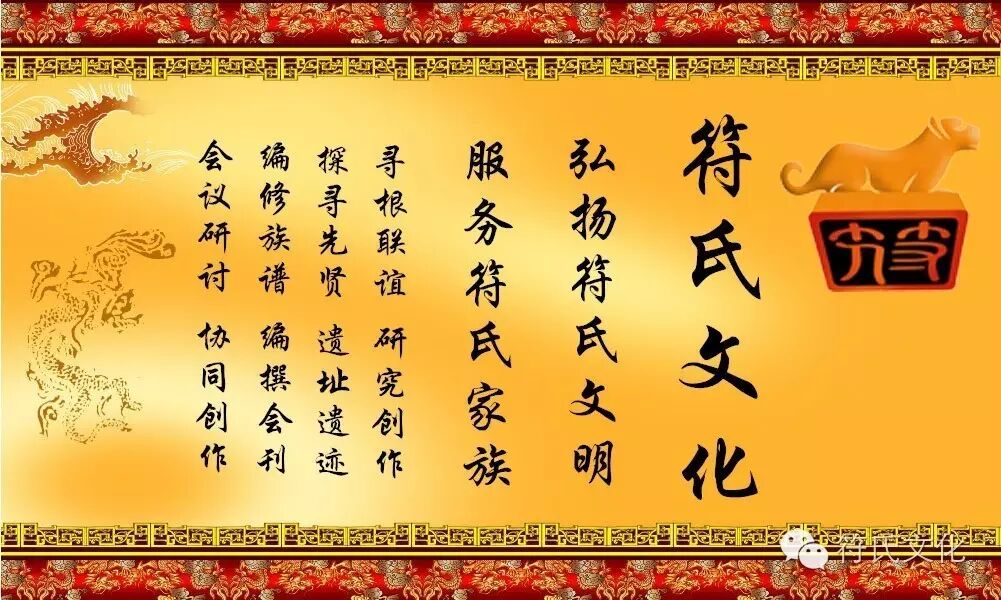 符氏文化
弘扬符氏文明
服务符氏家族
寻根联谊 研究创作
探寻先贤 遗址遗迹
编修族谱 编撰会刊
会议研讨 协同创作
符氏文化